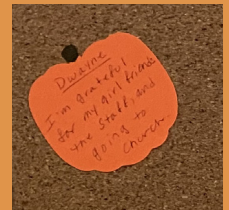 Dwayne
I'm grateful
for my girl friend
the staff, and
going to
church